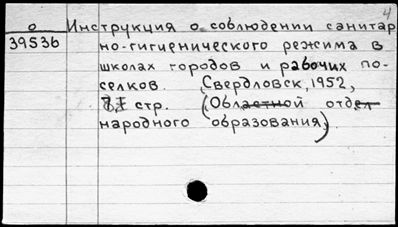 4
о Инструкция о соблюдении санитар
39536 но-гигиенического режима в
школах городов и рабочих по-
селков. Свердловск, 1952,
стр. (Областной отдел
народного образования)